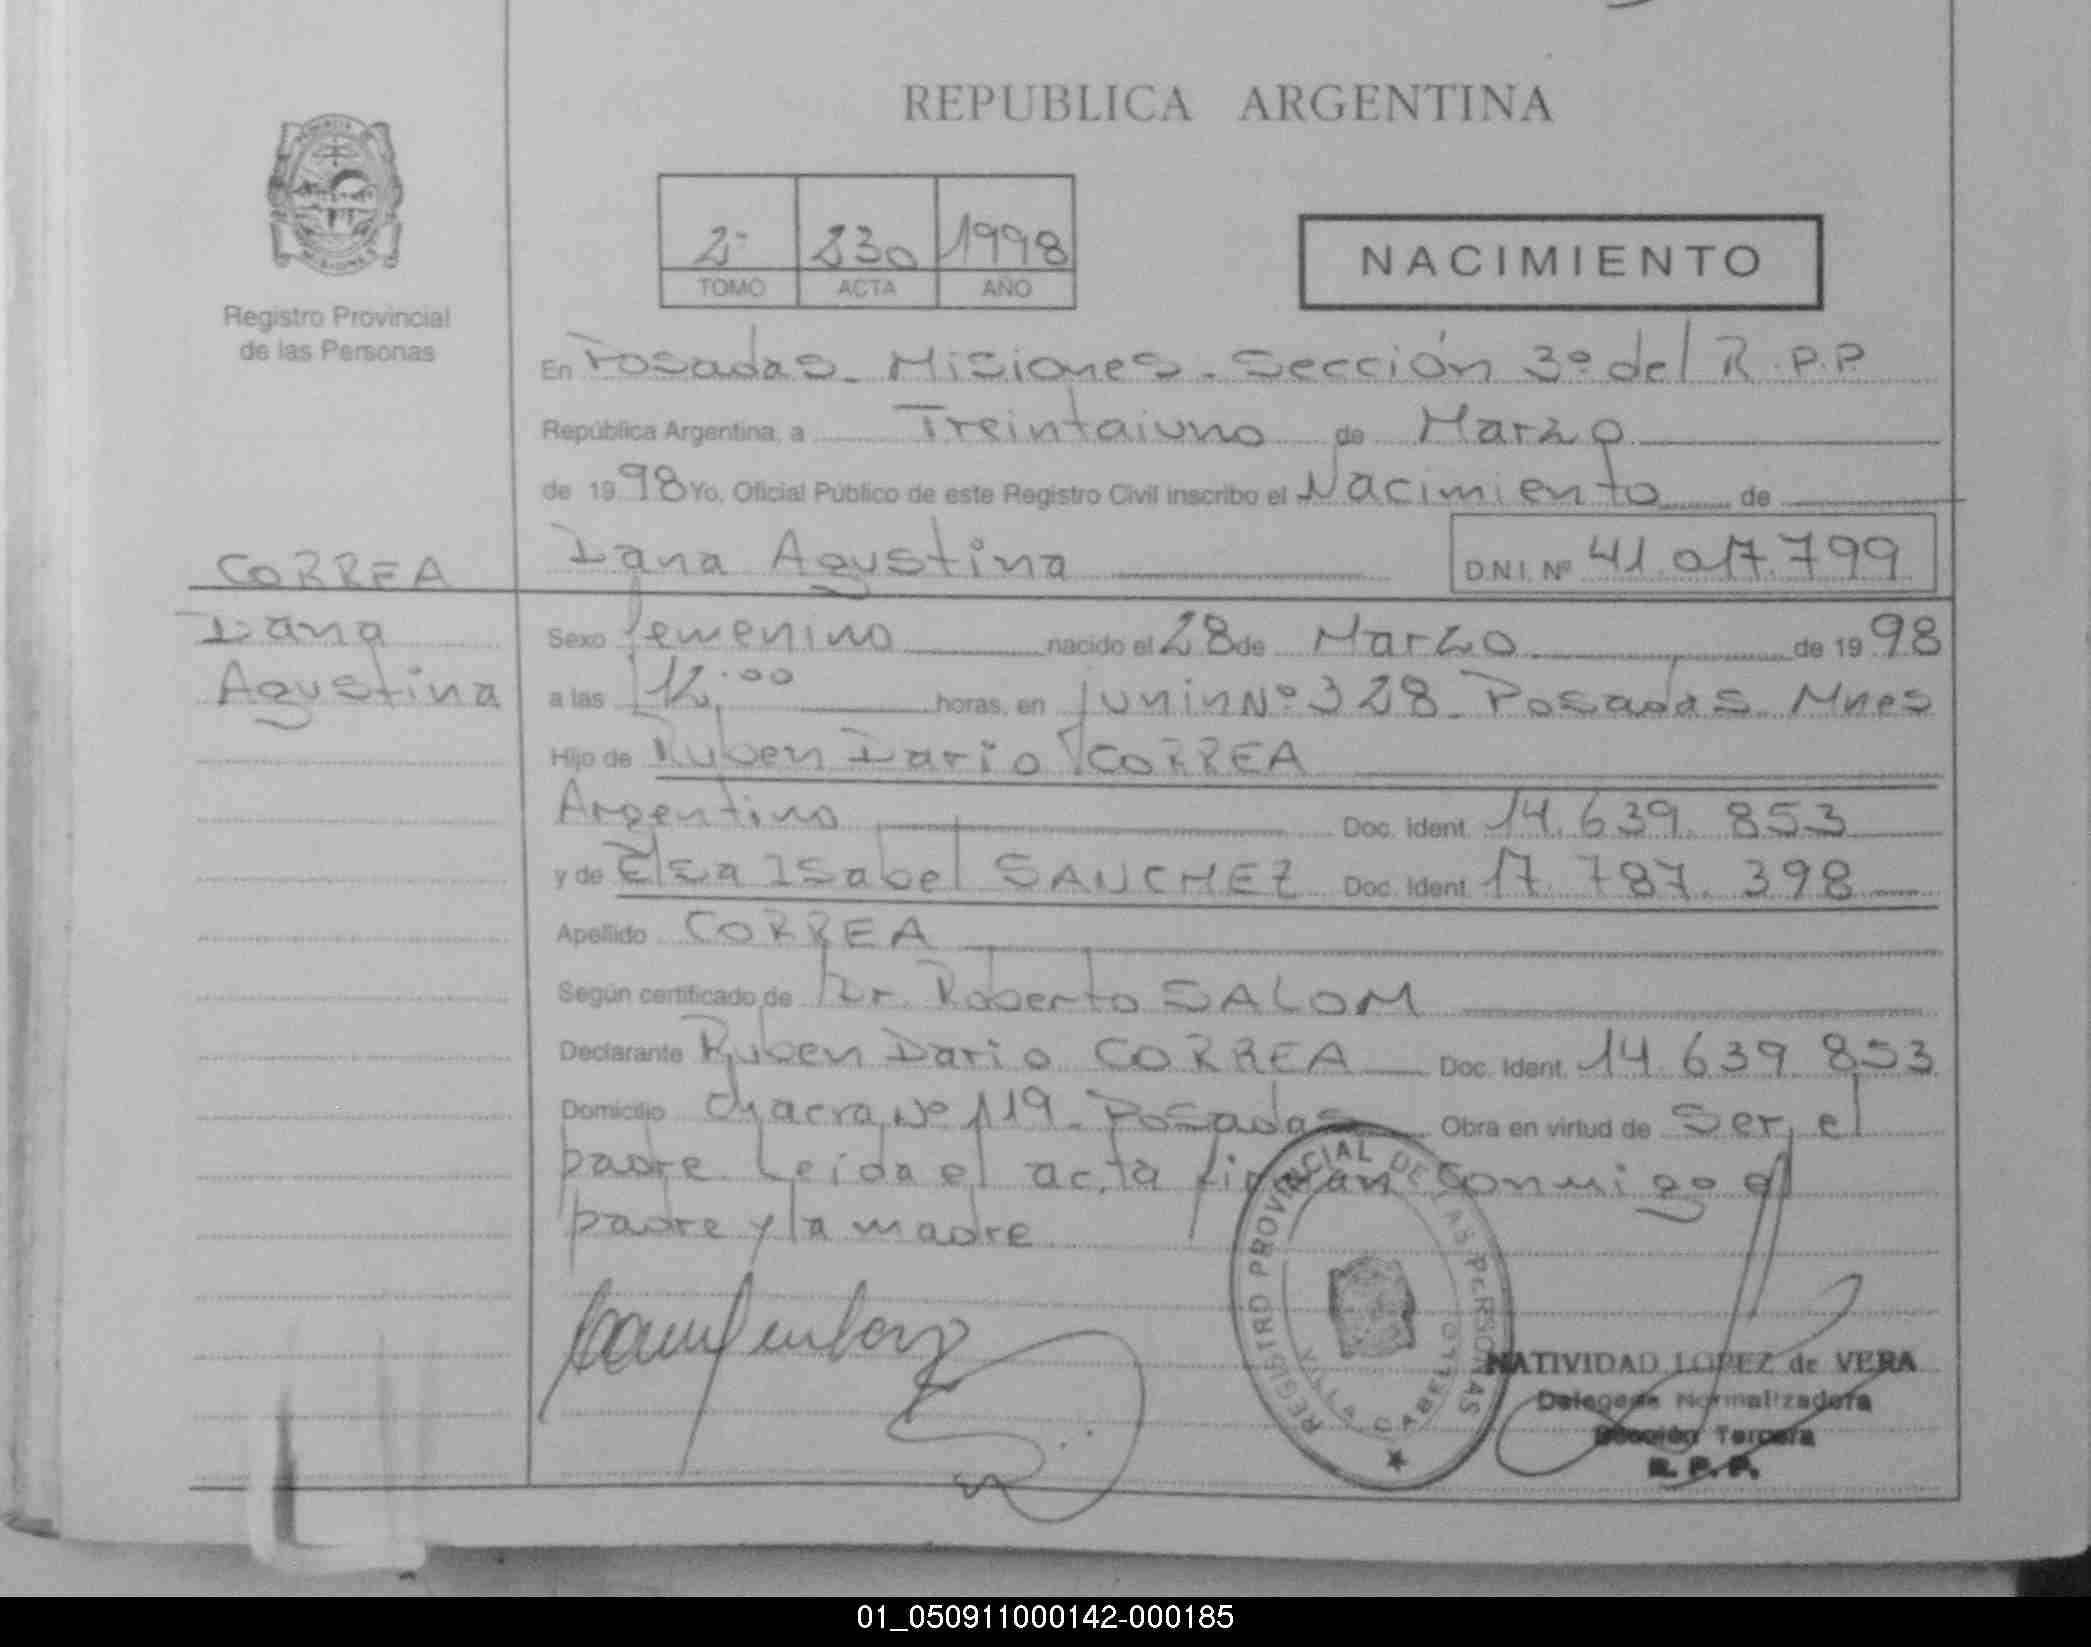 REPUBLICA ARGENTINA
2º 230 1998
TOMO ACTA AÑO
NACIMIENTO
Registro Provincial
de las Personas
En Posadas - Misiones - Sección 3º del R.P.P
República Argentina, a Treintaiuno de Marzo
de 1998 Yo, Oficial Público de este Registro Civil inscribo el Nacimiento de
CORREA
Dana Agustina
D.N.I. Nº 41.017.799
Dana
Agustina
Sexo femenino nacido el 28 de Marzo de 1998
a las 12:00 horas, en Junin Nº 328 - Posadas Mnes
Hijo de Ruben Dario CORREA
Argentino Doc. Ident. 14.639.853
y de Elsa Isabel SANCHEZ Doc. Ident. 17.787.398
Apellido CORREA
Según certificado de Dr. Roberto SALOM
Declarante Ruben Dario CORREA Doc. Ident. 14.639.853
Domicilio Chacra Nº 119 - Posadas Obra en virtud de Ser el
padre Leida el acta firman conmigo el
padre y la madre
REGISTRO PROVINCIAL DE LAS PERSONAS
VILLA CABELLO
NATIVIDAD LOPEZ de VERA
Delegada Normalizadora
Sección Tercera
R. P. P.
01_050911000142-000185